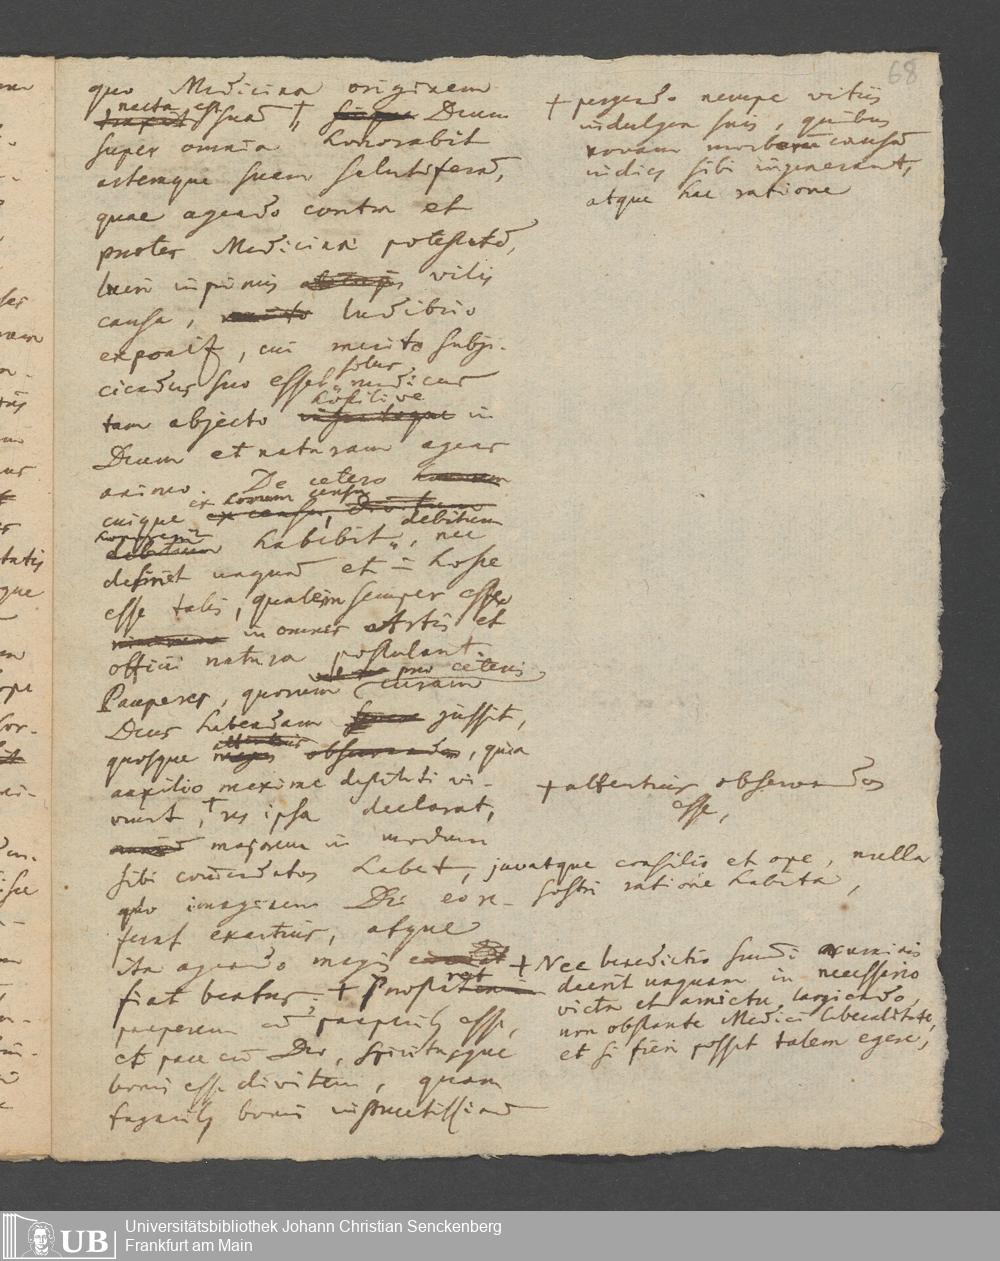 68
quo Medicina originem
nacta est
suam †, Deum
super omnia honorabit
artemque suam salutiferã,
quae agendo contra et
praeter Medicinae potestatẽ,
lucri inprimis vilis
causa, ludibrio
exponit, cui merito subji-
ciendus suo esset
solus medicus
tam abjecto hostilive in
Deum et naturam agens
animo. De cetero
cuique ex eorum censu debitum
honorem
habebit, nec
desinet unquam et in hoste
esse talis, qualem semper esse
in omnes Artis et
officii natura postulant.
prae ceteris
Pauperes, quorum curam
Deus habendam jussit,
quosque, quia
auxilio maxime destituti vi-
vunt, † res ipsa declarat,
majorem in modum
sibi com̃endatos habet, juvatque consilio et ope, nulla
sostri ratione habita,
quo imaginem Dei eo re-
ferat exactius, atque
ita agendo magis
fiat beatus. † Praestat
pauperem cũ pauperib9 esse,
et pace cũ Deo, Spiritusque
bonis esse divitem, quam
fugacib9 bonis instructissimũ
† pergendo nempe vitiis
indulgere suis, quibus
novam morborum causam
indies sibi ingenerant,
atque hac ratione
† attentius observandos
esse,
† Nec benedictio summi numinis
deerit unquam in necessario
victu et amictu largiendo,
non obstante Medici liberalitate,
et si fieri possit talem egere,
UB
Universitätsbibliothek Johann Christian Senckenberg
Frankfurt am Main